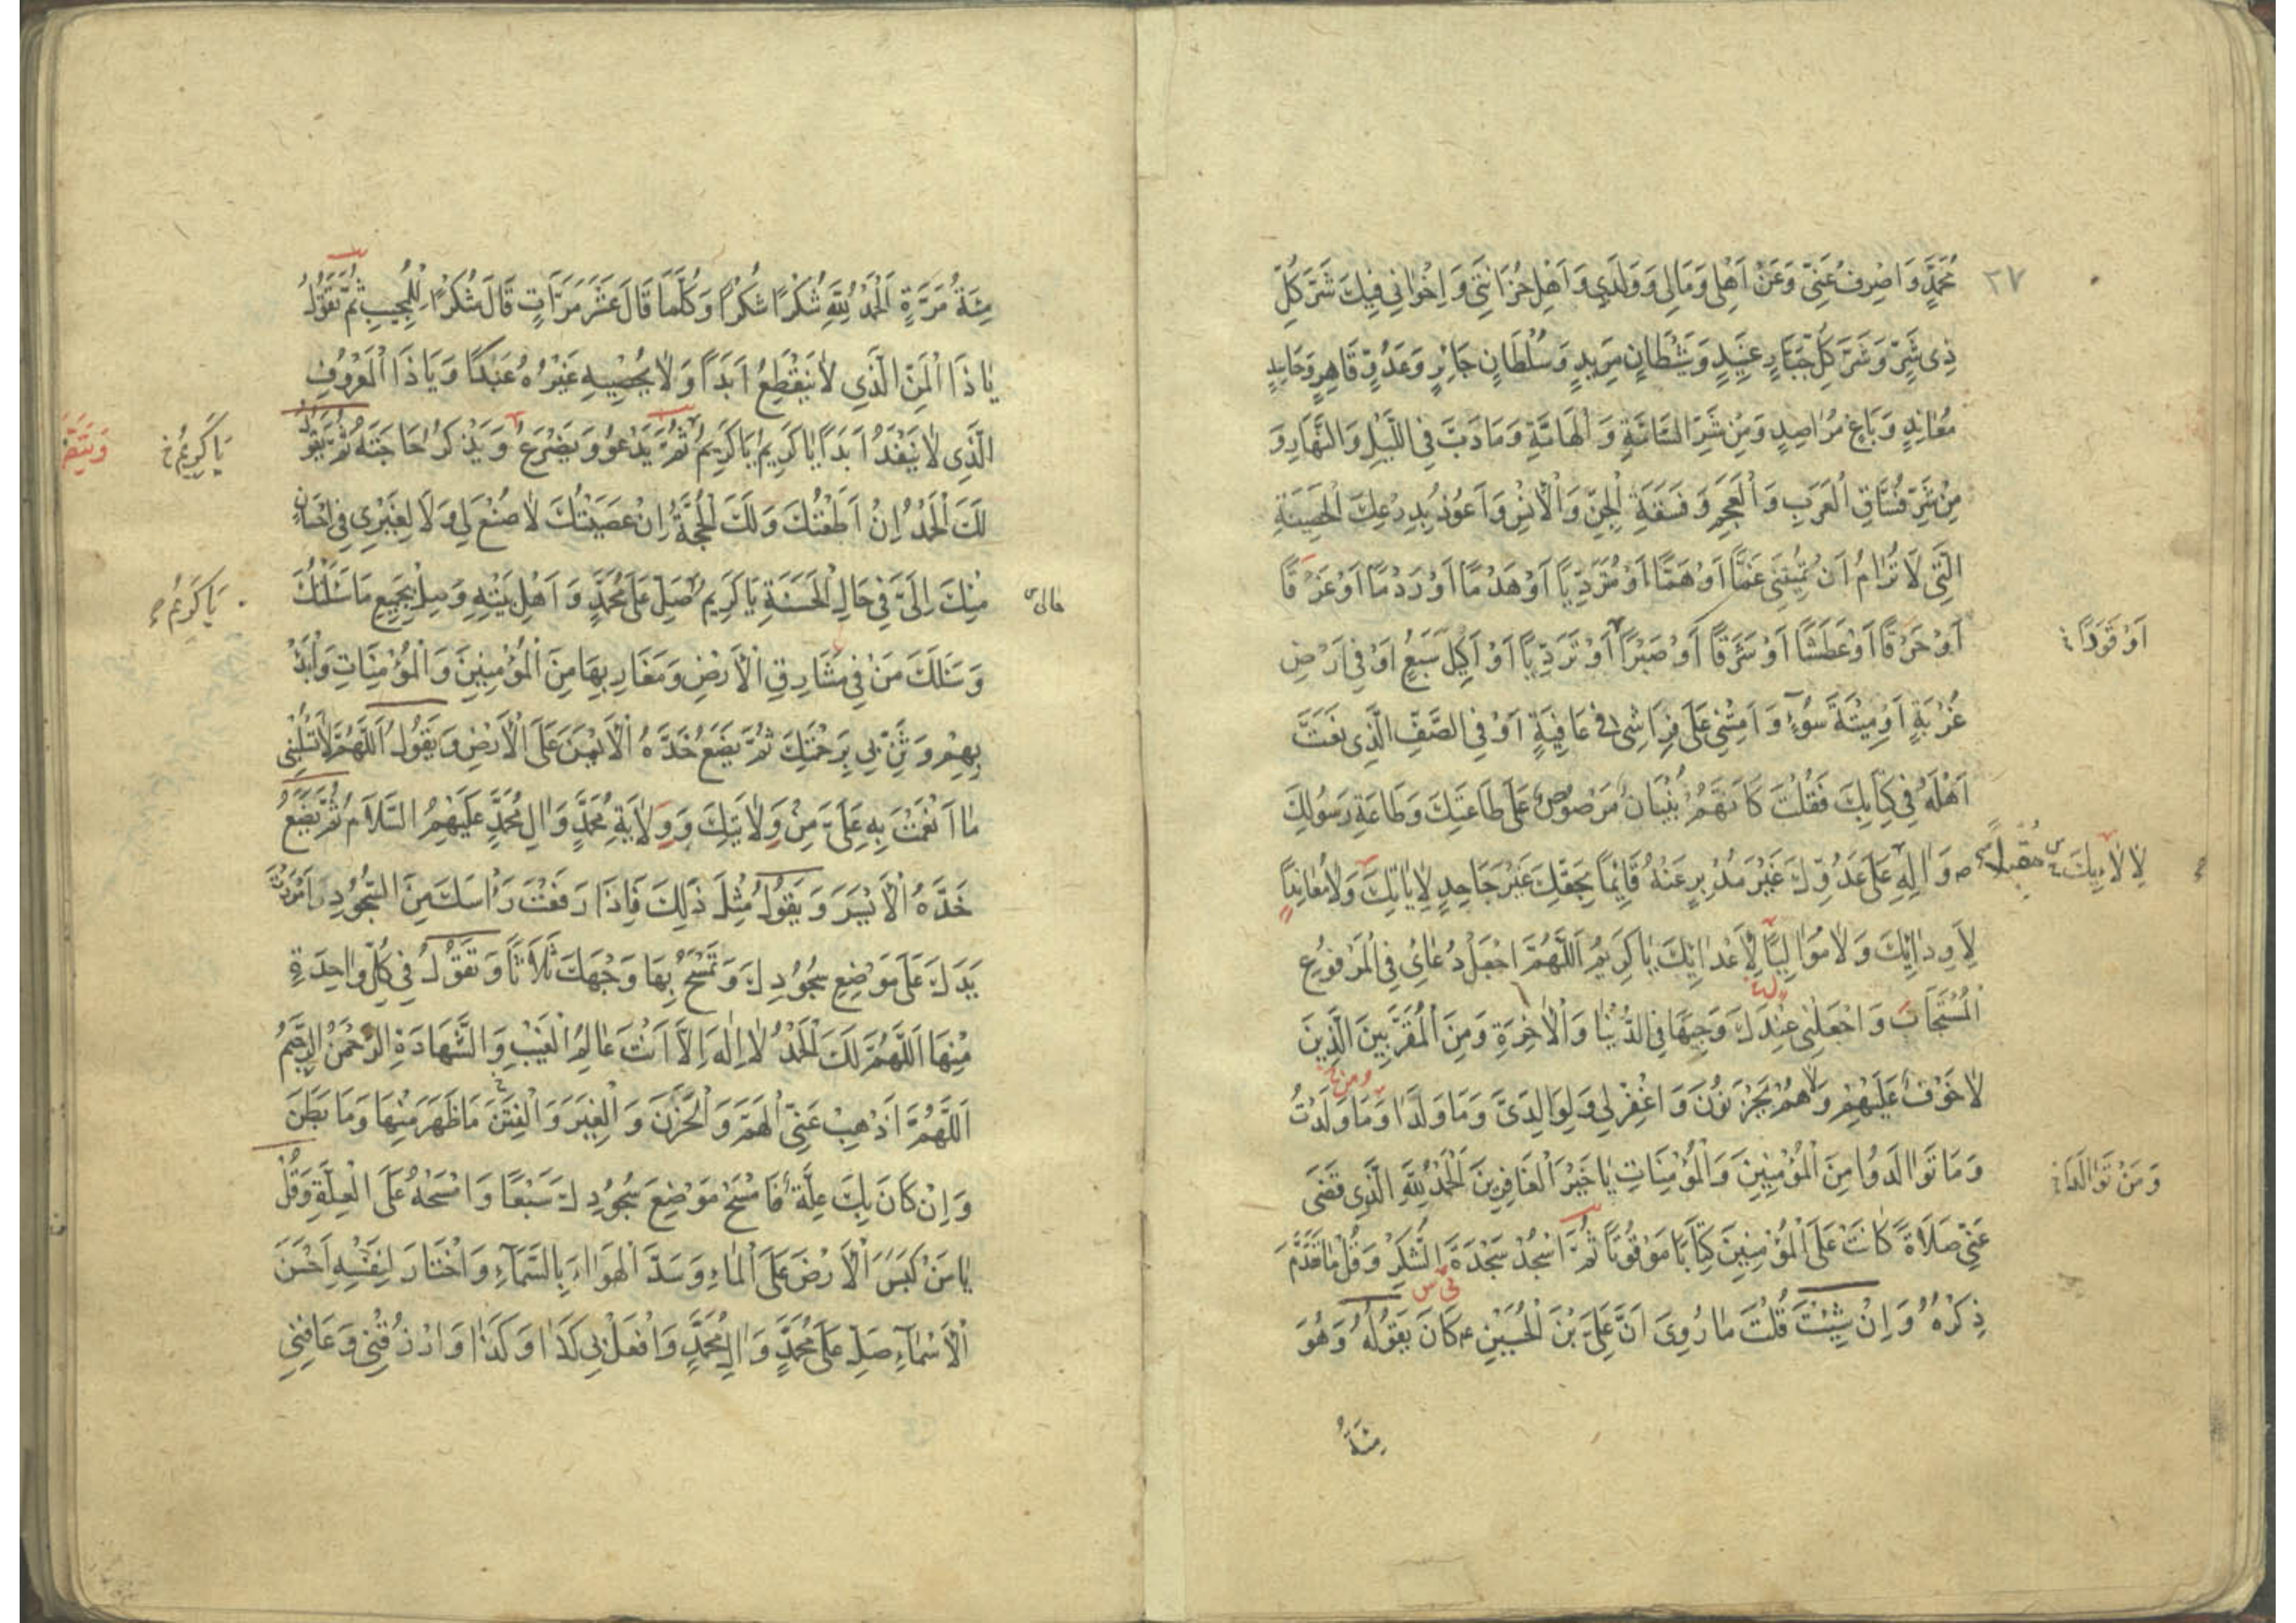 ٢٧
مُحَمَّدٍ وَاصْرِفْ عَنِّي وَعَنْ اَهْلِي وَمَالِي وَوَلَدِي وَاَهْلِ حُزَانَتِي وَاِخْوَانِي فِيكَ شَرَّ كُلِّ
ذِي شَرٍّ وَشَرَّ كُلِّ جَبَّارٍ عَنِيدٍ وَشَيْطَانٍ مَرِيدٍ وَسُلْطَانٍ جَائِرٍ وَعَدُوٍّ قَاهِرٍ وَحَاسِدٍ
مُعَانِدٍ وَبَاغٍ مُرَاصِدٍ وَمِنْ شَرِّ السَّامَّةِ وَالْهَامَّةِ وَمَا دَبَّ فِي اللَّيْلِ وَالنَّهَارِ وَ
مِنْ شَرِّ فُسَّاقِ الْعَرَبِ وَالْعَجَمِ وَفَسَقَةِ الْجِنِّ وَالْاِنْسِ وَاَعُوذُ بِدِرْعِكَ الْحَصِينَةِ
الَّتِي لَا تُرَامُ اَنْ تُمِيتَنِي غَمًّا اَوْ هَمًّا اَوْ مُتَرَدِّيًا اَوْ هَدْمًا اَوْ رَدْمًا اَوْ غَرَقًا
اَوْ حَرَقًا اَوْ عَطَشًا اَوْ شَرَقًا اَوْ صَبْرًا اَوْ تَرَدِّيًا اَوْ اَكِيلَ سَبُعٍ اَوْ فِي اَرْضِ
اَوْ قَوَدًا
غُرْبَةٍ اَوْ مِيتَةَ سُوءٍ وَاَمِتْنِي عَلَى فِرَاشِي فِي عَافِيَةٍ اَوْ فِي الصَّفِّ الَّذِي نَعَتَّ
اَهْلَهُ فِي كِتَابِكَ فَقُلْتَ كَاَنَّهُمْ بُنْيَانٌ مَرْصُوصٌ عَلَى طَاعَتِكَ وَطَاعَةِ رَسُولِكَ
ص وَاٰلِهِ عَلَى عَدُوِّكَ غَيْرَ مُدْبِرٍ عَنْهُ قَائِمًا بِحَقِّكَ غَيْرَ جَاحِدٍ لِاٰيَاتِكَ وَلَا مُعَانِدًا
مُقْبِلًا
لِاٰلَائِكَ
لِاَوِدَّائِكَ وَلَا مُوَالِيًا لِاَعْدَائِكَ يَا كَرِيمُ اَللَّهُمَّ اجْعَلْ دُعَائِي فِي الْمَرْفُوعِ
الْمُسْتَجَابِ وَاجْعَلْنِي عِنْدَكَ وَجِيهًا فِي الدُّنْيَا وَالْاٰخِرَةِ وَمِنَ الْمُقَرَّبِينَ الَّذِينَ
لَا خَوْفٌ عَلَيْهِمْ وَلَا هُمْ يَحْزَنُونَ وَاغْفِرْ لِي وَلِوَالِدَيَّ وَمَا وَلَدَا وَمَا وَلَدْتُ
ومن
وَمَا تَوَالَدُوا مِنَ الْمُؤْمِنِينَ وَالْمُؤْمِنَاتِ يَا خَيْرَ الْغَافِرِينَ الْحَمْدُ لِلّٰهِ الَّذِي قَضَى
وَمَنْ تَوَالَدَا
عَنِّي صَلَاةً كَانَتْ عَلَى الْمُؤْمِنِينَ كِتَابًا مَوْقُوتًا ثُمَّ اسْجُدْ سَجْدَةَ الشُّكْرِ وَقُلْ مَا تَقَدَّمَ
ذِكْرُهُ وَاِنْ شِئْتَ قُلْتَ مَا رُوِيَ اَنَّ عَلِيَّ بْنَ الْحُسَيْنِ ع كَانَ يَقُولُهُ وَهُوَ
مِئَةُ
مِئَةُ مَرَّةٍ اَلْحَمْدُ لِلّٰهِ شُكْرًا شُكْرًا وَكُلَّمَا قَالَ عَشْرَ مَرَّاتٍ قَالَ شُكْرًا لِلْمُجِيبِ ثُمَّ تَقُولُ
يَا ذَا الْمَنِّ الَّذِي لَا يَنْقَطِعُ اَبَدًا وَلَا يُحْصِيهِ غَيْرُهُ عَدَدًا وَيَا ذَا الْمَعْرُوفِ
الَّذِي لَا يَنْفَدُ اَبَدًا يَا كَرِيمُ يَا كَرِيمُ ثُمَّ يَدْعُو وَيَضْرَعُ وَيَذْكُرُ حَاجَتَهُ ثُمَّ يَقُولُ
يَا كَرِيمُ خ
لَكَ الْحَمْدُ اِنْ اَطَعْتُكَ وَلَكَ الْحُجَّةُ اِنْ عَصَيْتُكَ لَا صُنْعَ لِي وَلَا لِغَيْرِي فِي اِحْسَانٍ
مِنْكَ اِلَيَّ فِي حَالِ الْحَسَنَةِ يَا كَرِيمُ صَلِّ عَلَى مُحَمَّدٍ وَاَهْلِ بَيْتِهِ وَصِلْ بِجَمِيعِ مَا سَئَلْتُكَ
حالی
يَا كَرِيمُ
وَسَئَلَكَ مَنْ فِي مَشَارِقِ الْاَرْضِ وَمَغَارِبِهَا مِنَ الْمُؤْمِنِينَ وَالْمُؤْمِنَاتِ وَابْدَأْ
بِهِمْ وَثَنِّ بِي بِرَحْمَتِكَ ثُمَّ يَضَعُ خَدَّهُ الْاَيْمَنَ عَلَى الْاَرْضِ وَيَقُولُ اَللَّهُمَّ لَا تَسْلُبْنِي
مَا اَنْعَمْتَ بِهِ عَلَيَّ مِنْ وِلَايَتِكَ وَوِلَايَةِ مُحَمَّدٍ وَاٰلِ مُحَمَّدٍ عَلَيْهِمُ السَّلَامُ ثُمَّ يَضَعُ
خَدَّهُ الْاَيْسَرَ وَيَقُولُ مِثْلَ ذٰلِكَ فَاِذَا رَفَعْتَ رَاْسَكَ مِنَ السُّجُودِ اَمْرَرْتَ
يَدَكَ عَلَى مَوْضِعِ سُجُودِكَ وَتَمْسَحُ بِهَا وَجْهَكَ ثَلَاثًا وَتَقُولُ فِي كُلِّ وَاحِدَةٍ
مِنْهَا اَللَّهُمَّ لَكَ الْحَمْدُ لَا اِلٰهَ اِلَّا اَنْتَ عَالِمُ الْغَيْبِ وَالشَّهَادَةِ الرَّحْمٰنُ الرَّحِيمُ
اَللَّهُمَّ اَذْهِبْ عَنِّي الْهَمَّ وَالْحَزَنَ وَالْغِيَرَ وَالْفِتَنَ مَا ظَهَرَ مِنْهَا وَمَا بَطَنَ
وَاِنْ كَانَ بِكَ عِلَّةٌ فَامْسَحْ مَوْضِعَ سُجُودِكَ سَبْعًا وَامْسَحْهُ عَلَى الْعِلَّةِ وَقُلْ
يَا مَنْ كَبَسَ الْاَرْضَ عَلَى الْمَاءِ وَسَدَّ الْهَوَاءَ بِالسَّمَاءِ وَاخْتَارَ لِنَفْسِهِ اَحْسَنَ
الْاَسْمَاءِ صَلِّ عَلَى مُحَمَّدٍ وَاٰلِ مُحَمَّدٍ وَافْعَلْ بِي كَذَا وَكَذَا وَارْزُقْنِي وَعَافِنِي